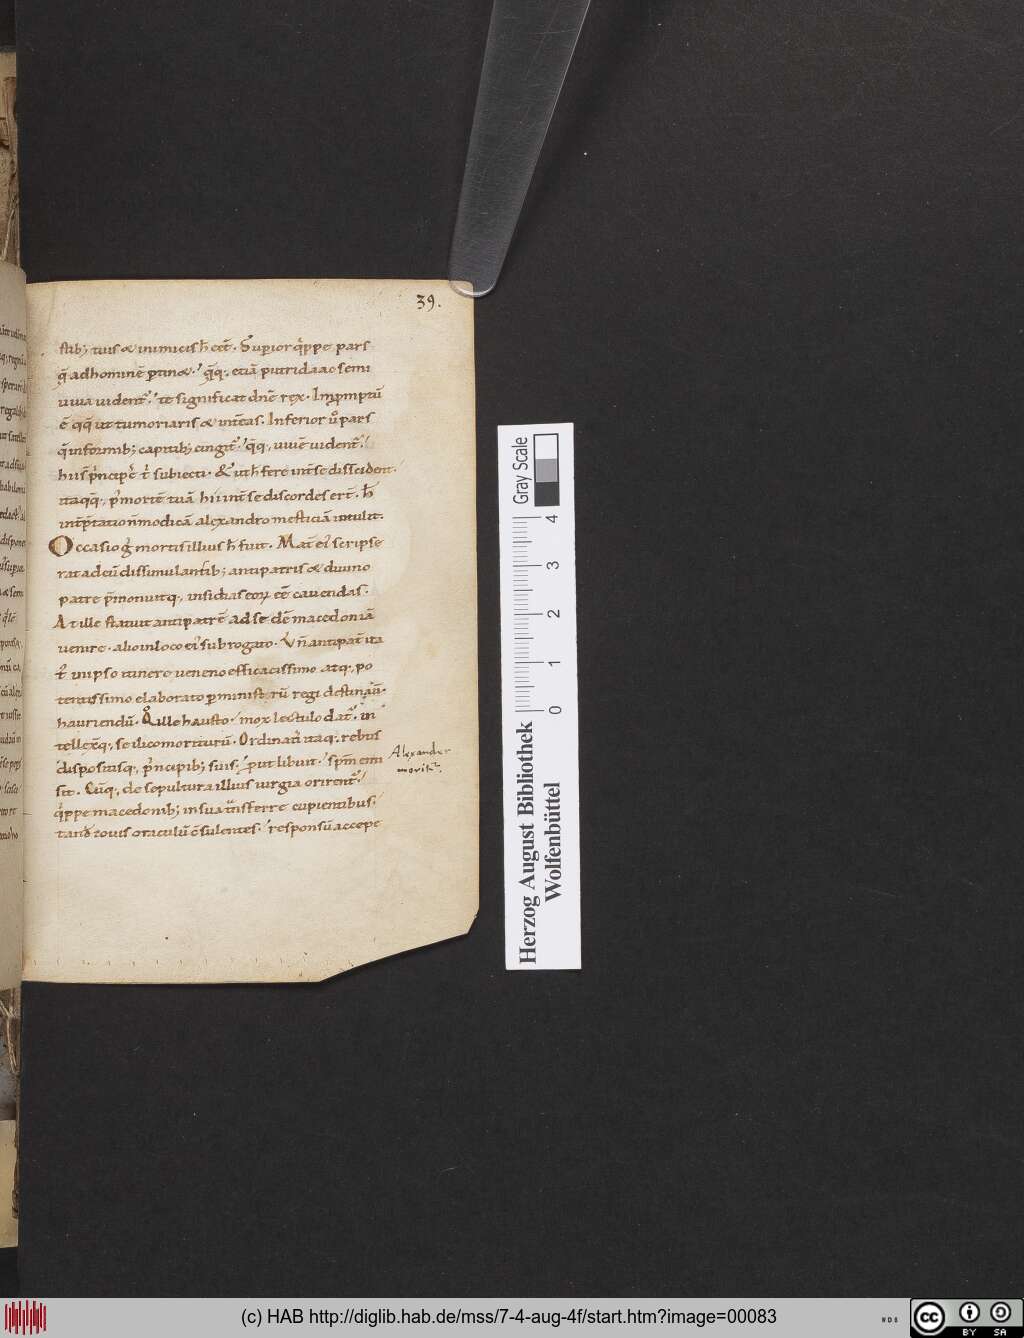 39.
stib; tuis & inimicis h̄ cēt. Superior q̄ppe pars
q̄ ad hominē ptin&. q̄q; etiā putrida ac semi
uiua uident̄. te significat dn̄e rex. Impmptū
ē qq̄ ut tumoriaris & int̄eas. Inferior ů pars
q̄ informib; capitib; cingit̄. q̄q; uiuē uident̄.
hi is p̄ncipē t̄ subiecti. & ut h̄ fere int̄ se dissident.
itaqq̄. p̄ mortē tuā hi int̄ se discordes ert̄. h̄
int̄p̄tatio n̄ modicā alexandro mesticiā intulit.
Occasio g̊ mortis illius h̄ fuit. Mat̄ ei' scripse
rat ad eū dissimulantib; antipatris & diuino
patre p̄monuitq; insidias eoꝝ eē cauendas.
At ille statuit antipatrē ad se dē macedoniā
uenire. alio in loco ei' subrogato. Vn̄ antipat̄ ita
t̄ in ipso itinere ueneno efficacissimo atq; po
tentissimo elaborato p ministrū regi destinau̅.
hauriendū. Q̊ ille hausto. mox lectulo dat̄. in
tellexq̄; se ilico moriturū. Ordinati' itaq; rebus
dispositisq; p̄ncipib; suis. put libuit. spm̄ emi
sit. Cūq; de sepultura illius iurgia orirent̄.
q̄ppe macedonib; in sua t̄nsferre cupientibus.
tand̄ iouis oraculū c̄sulentes. responsū accepe
Alexander
morit̄.
Gray Scale
4
3
2
1
0
Herzog August Bibliothek
Wolfenbüttel
(c) HAB http://diglib.hab.de/mss/7-4-aug-4f/start.htm?image=00083
cc
BY SA